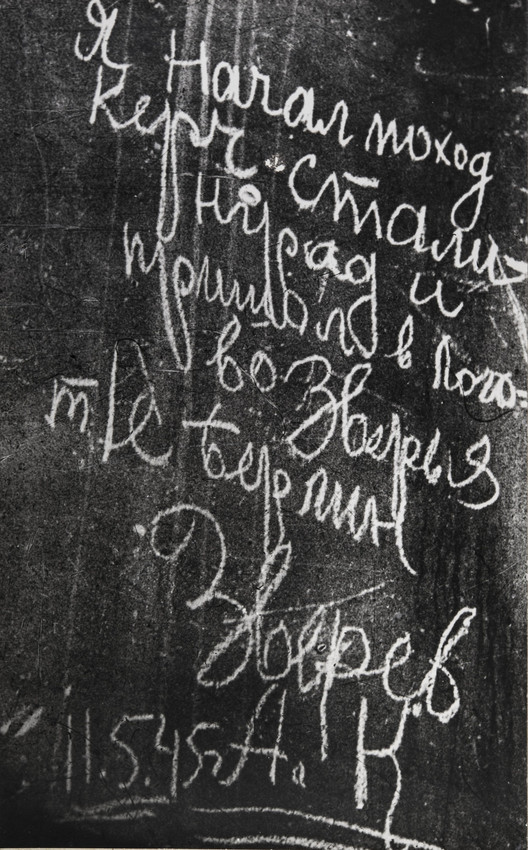 Я Начал поход
Керч-Стали-
нград и
пришол в лого-
во Зверья
т.Е Берлин
Зверев
11.5.45г А. К.